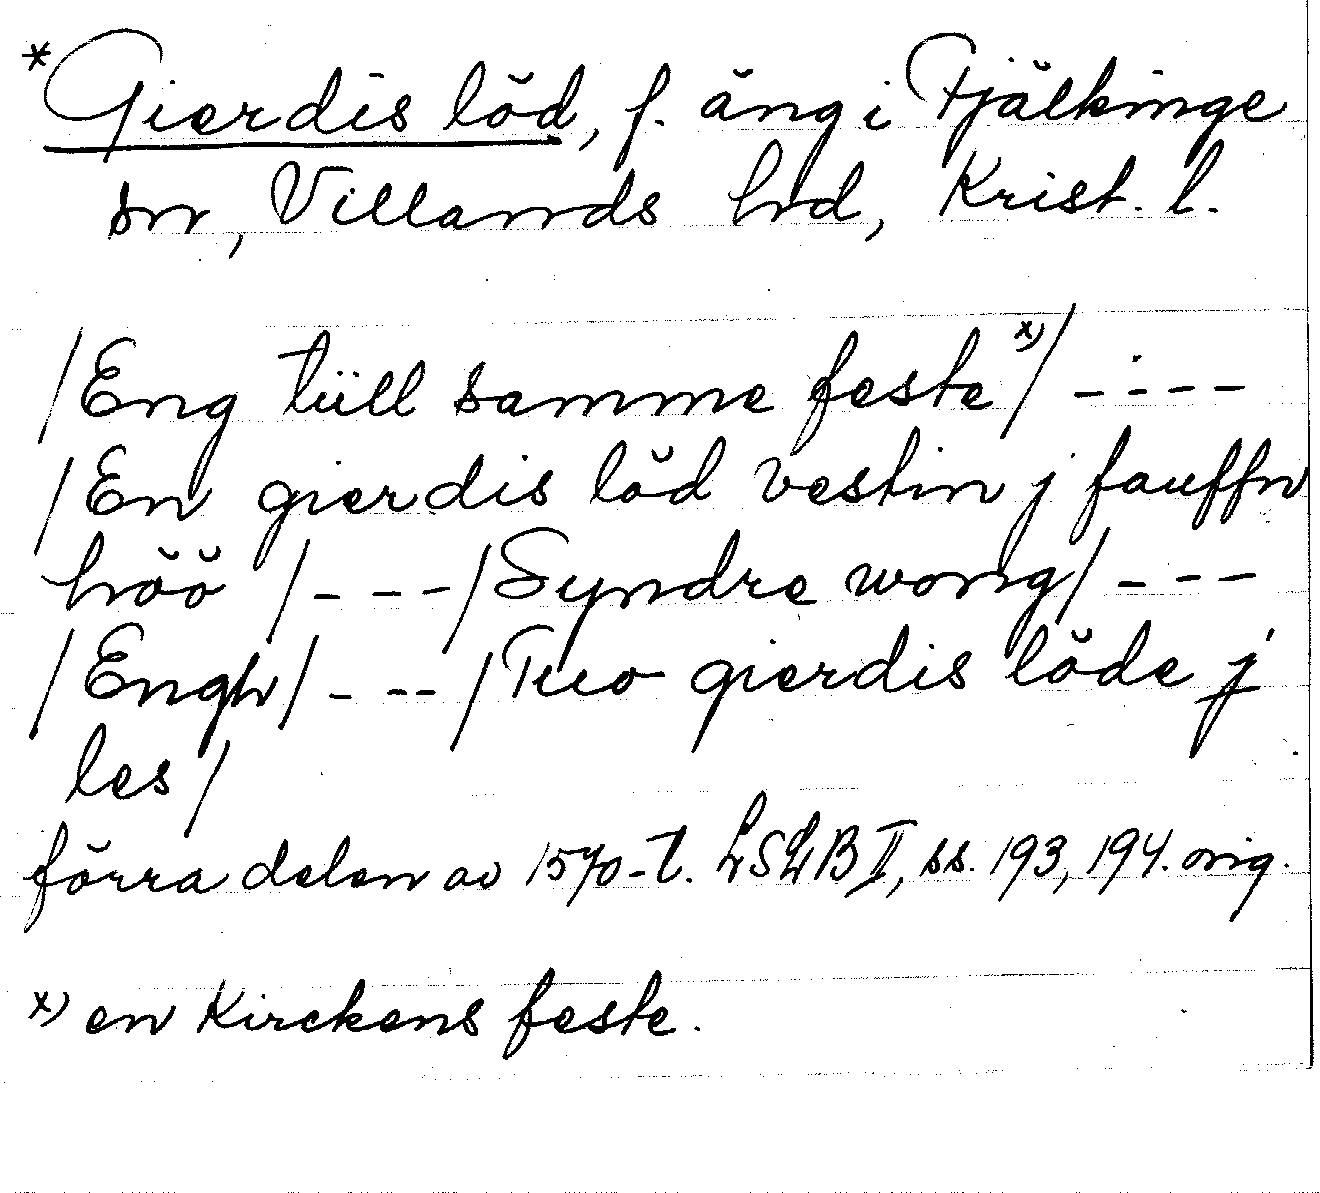 *Gierdis löd, f. äng i Fjälkinge
sn, Villands hd, Krist. l.
/Eng tüll samme feste x)/ - - - -
/En gierdis löd vestin j fauffn
höö /- - -/Syndre wong/ - - -
/Engh/- - -/Tuo gierdis löde j
les/
förra delen av 1570-t. LSLB II, ss. 193, 194. orig.
x) en Kirckens feste.